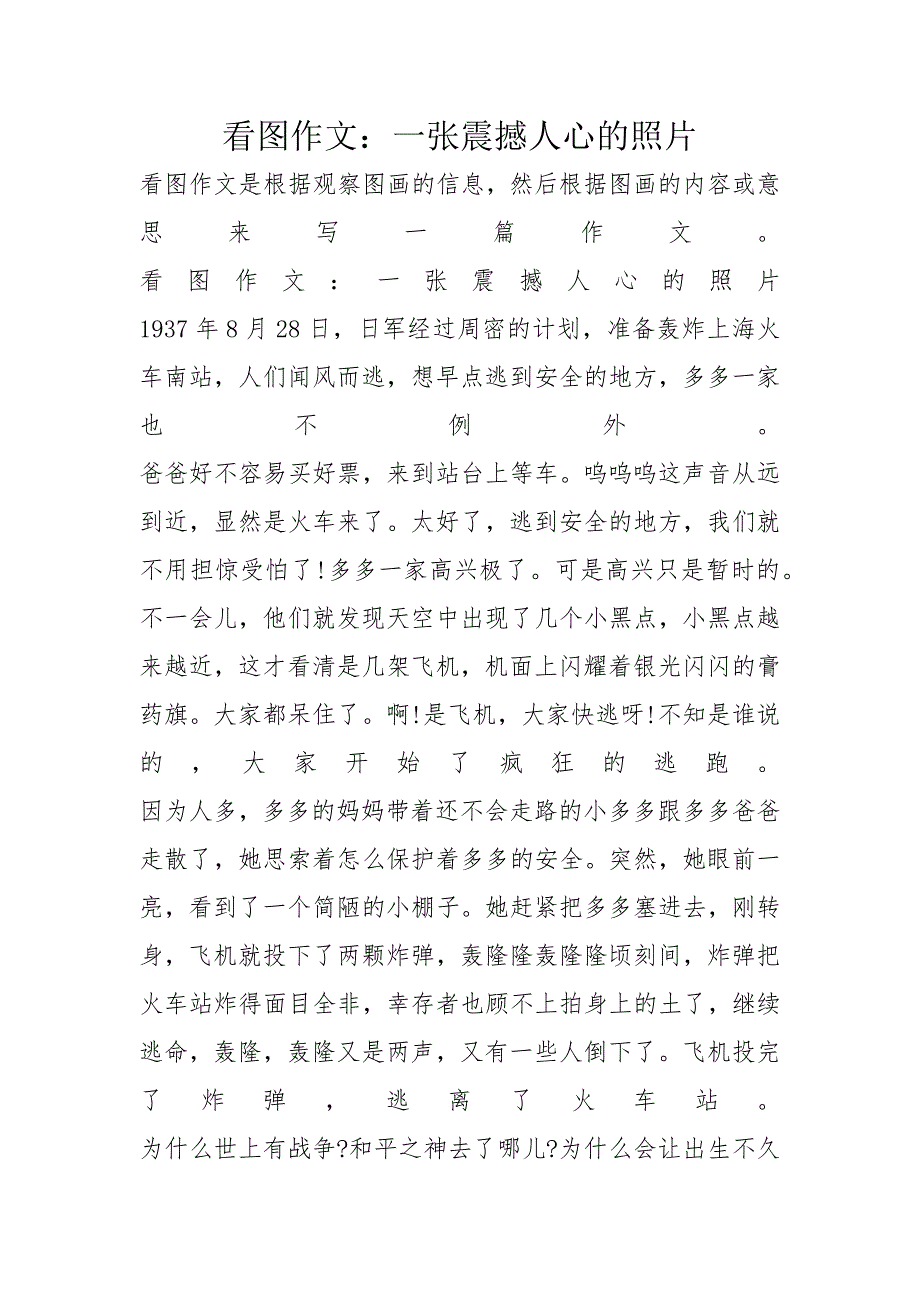 看图作文：一张震撼人心的照片
看图作文是根据观察图画的信息，然后根据图画的内容或意
思来写一篇作文。
看图作文：一张震撼人心的照片
1937年8月28日，日军经过周密的计划，准备轰炸上海火
车南站，人们闻风而逃，想早点逃到安全的地方，多多一家
也不例外。
爸爸好不容易买好票，来到站台上等车。呜呜呜这声音从远
到近，显然是火车来了。太好了，逃到安全的地方，我们就
不用担惊受怕了!多多一家高兴极了。可是高兴只是暂时的。
不一会儿，他们就发现天空中出现了几个小黑点，小黑点越
来越近，这才看清是几架飞机，机面上闪耀着银光闪闪的膏
药旗。大家都呆住了。啊!是飞机，大家快逃呀!不知是谁说
的，大家开始了疯狂的逃跑。
因为人多，多多的妈妈带着还不会走路的小多多跟多多爸爸
走散了，她思索着怎么保护着多多的安全。突然，她眼前一
亮，看到了一个简陋的小棚子。她赶紧把多多塞进去，刚转
身，飞机就投下了两颗炸弹，轰隆隆轰隆隆顷刻间，炸弹把
火车站炸得面目全非，幸存者也顾不上拍身上的土了，继续
逃命，轰隆，轰隆又是两声，又有一些人倒下了。飞机投完
了炸弹，逃离了火车站。
为什么世上有战争?和平之神去了哪儿?为什么会让出生不久